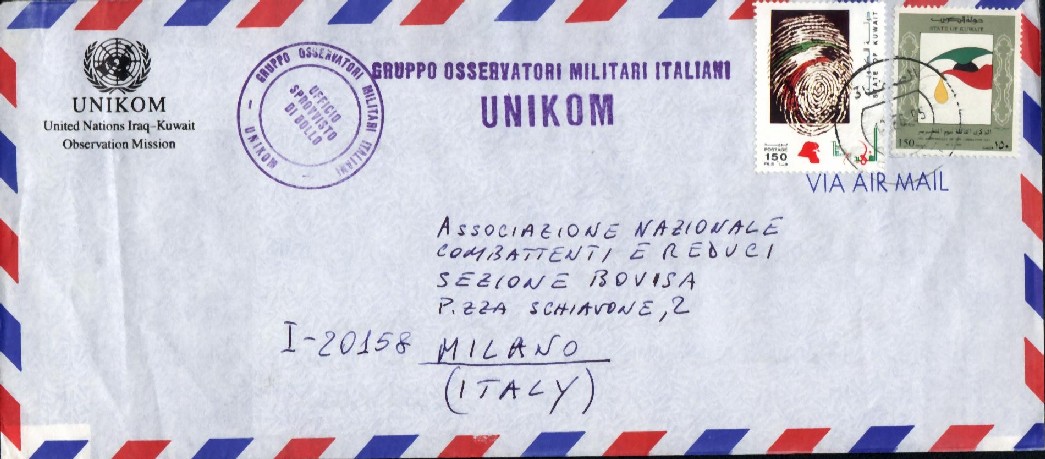 UNIKOM
United Nations Iraq–Kuwait
Observation Mission
GRUPPO OSSERVATORI MILITARI ITALIANI
– UNIKOM –
UFFICIO
SPROVVISTO
DI BOLLO
GRUPPO OSSERVATORI MILITARI ITALIANI
UNIKOM
STATE OF KUWAIT
POSTAGE
150
FILS
دولة الكويت
STATE OF KUWAIT
150
١٥٠
VIA AIR MAIL
ASSOCIAZIONE NAZIONALE
COMBATTENTI E REDUCI
SEZIONE BOVISA
P.ZZA SCHIAVONE, 2
I-20158 MILANO
(ITALY)